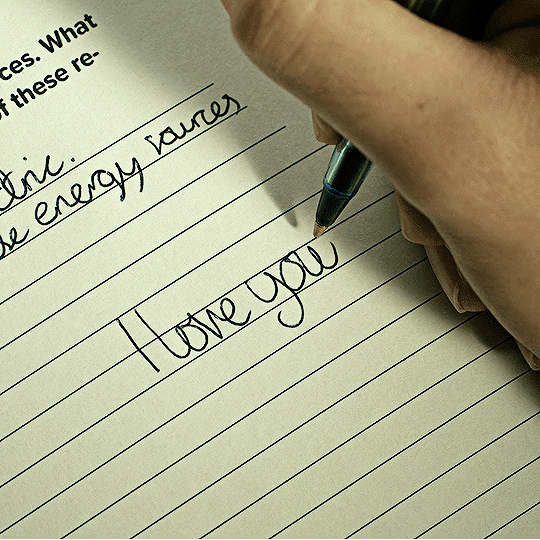 ces. What
of these re-
ctric.
se energy sources
I love you